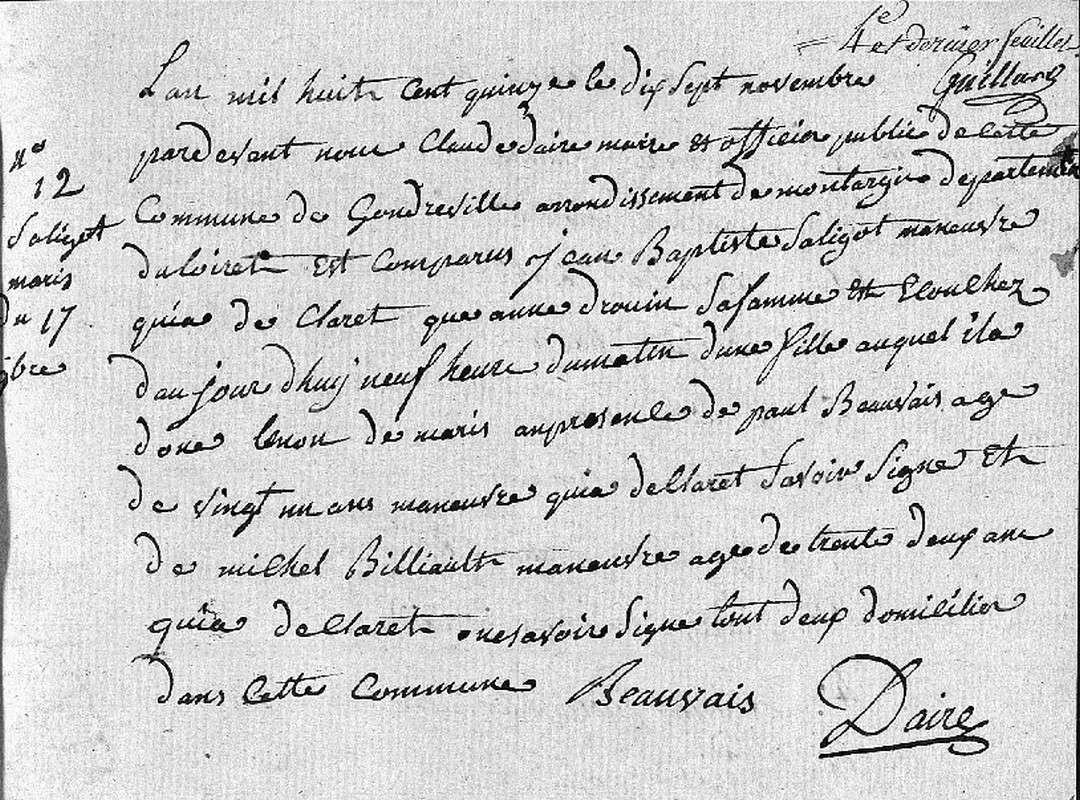 4e et dernier feuillet
Guillard
Lan mil huit Cent quinze le dix Sept novembre
pardevant nous Claude daire maire et officier public de Cette
Commune de Gondreville arrondissement de montargis departement
du loiret Est Comparus jean Baptiste Saligot maneuvre
quia de Claret que anne drouin Safamme Est Ecouchez
daujour dhuy neuf heure dumatin dune fille auquel ila
done lenon de maris anpresence de paul Beauvais age
de vingt un ans maneuvre quia de Claret Savoir Signe Et
de michel Billiault maneuvre age de trente deux ans
quia de Claret ne savoir Signe tout deux domicilier
dans Cette Commune
Beauvais
Daire
No
12
Saligot
maris
du 17
9bre